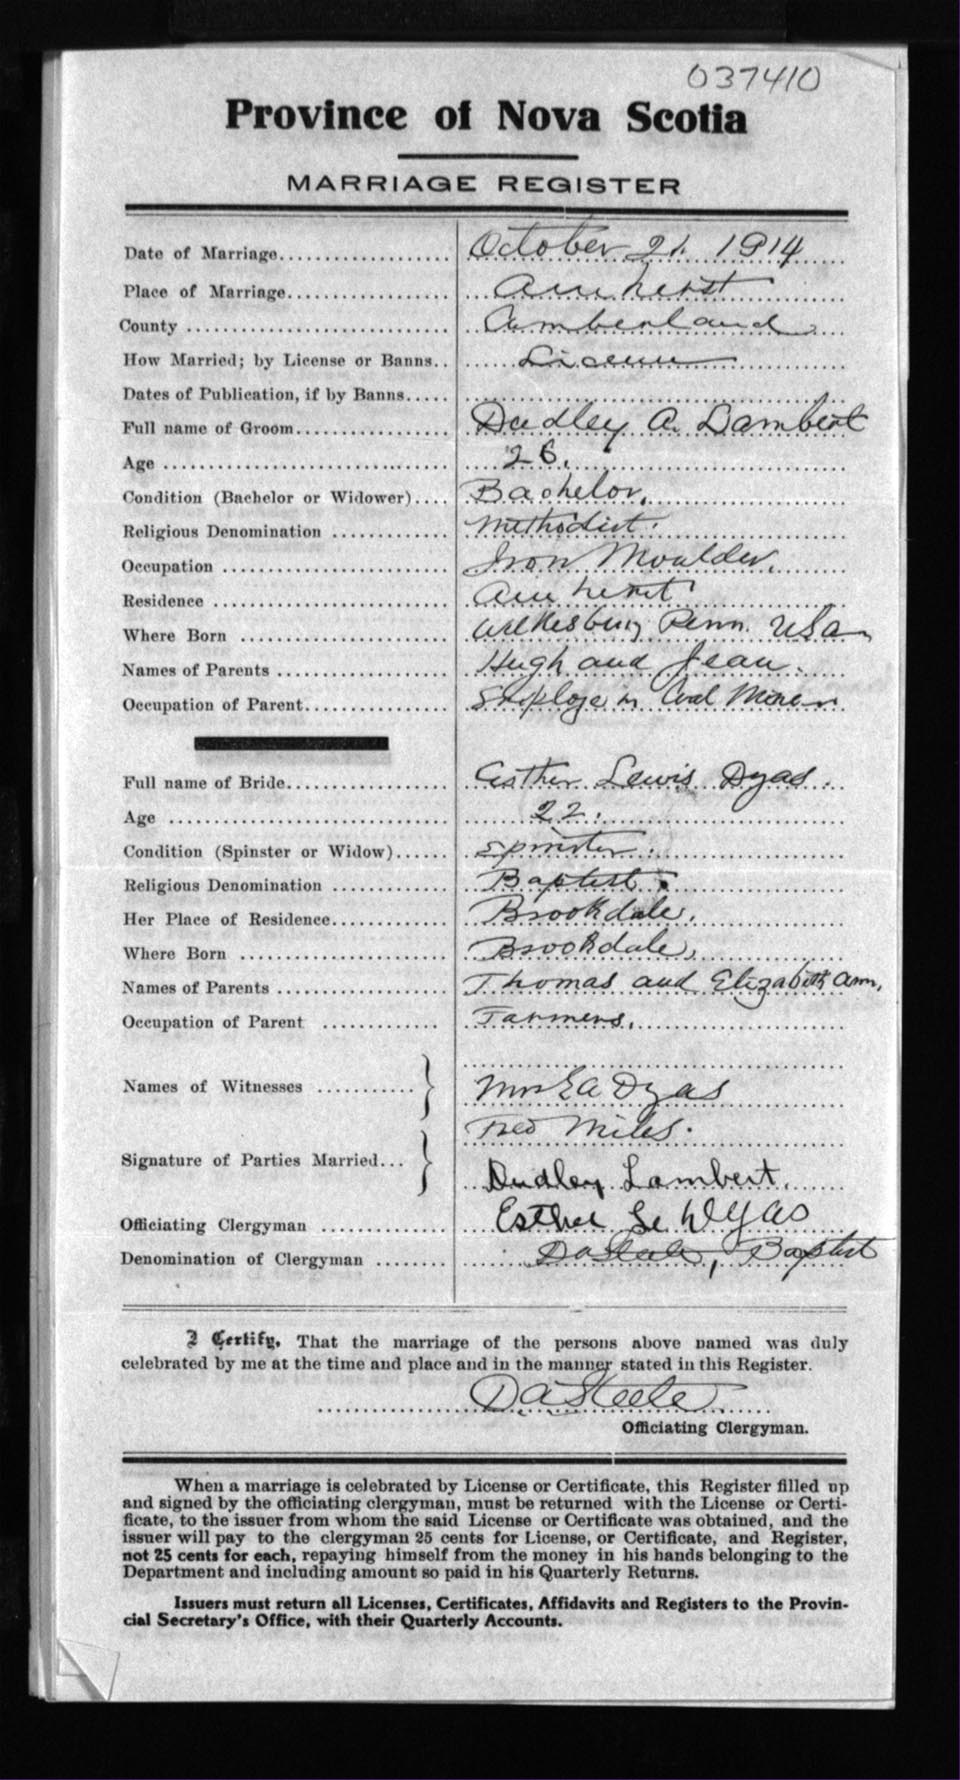 037410
Province of Nova Scotia
MARRIAGE REGISTER
Date of Marriage.................... October 21. 1914
Place of Marriage................... Amherst
County ............................ Cumberland
How Married; by License or Banns.. License
Dates of Publication, if by Banns.....
Full name of Groom.................. Dudley A. Lambert
Age ............................... 26.
Condition (Bachelor or Widower).... Bachelor.
Religious Denomination ............. Methodist.
Occupation ......................... Iron Moulder.
Residence .......................... Amherst
Where Born ........................ Wilkesbury Penn. USA
Names of Parents ................... Hugh and Jean.
Occupation of Parent................ in Coal Mines
Full name of Bride................... Esther Lewis Dyas.
Age ............................... 22.
Condition (Spinster or Widow)...... Spinster.
Religious Denomination ............. Baptist.
Her Place of Residence.............. Brookdale.
Where Born ........................ Brookdale,
Names of Parents ................... Thomas and Elizabeth Ann,
Occupation of Parent ............. Farmers.
Names of Witnesses ........... } Mrs E A Dyas
Fred Miles.
Signature of Parties Married... } Dudley Lambert.
Officiating Clergyman .............. Esther Le Dyas
Denomination of Clergyman ........ DaSteele, Baptist
I Certify, That the marriage of the persons above named was duly
celebrated by me at the time and place and in the manner stated in this Register.
DaSteele
Officiating Clergyman.
When a marriage is celebrated by License or Certificate, this Register filled up
and signed by the officiating clergyman, must be returned with the License or Certi-
ficate, to the issuer from whom the said License or Certificate was obtained, and the
issuer will pay to the clergyman 25 cents for License, or Certificate, and Register,
not 25 cents for each, repaying himself from the money in his hands belonging to the
Department and including amount so paid in his Quarterly Returns.
Issuers must return all Licenses, Certificates, Affidavits and Registers to the Provin-
cial Secretary's Office, with their Quarterly Accounts.